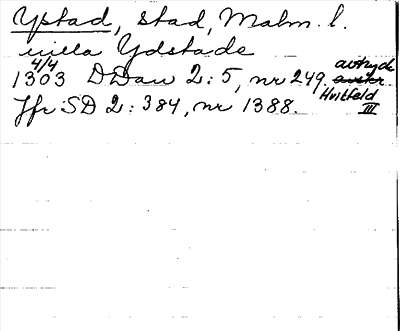 Ystad, stad, Malm. l.
villa Ydstade
4/4
1303 DDan 2:5, nr 249. avtryck
Huitfeld
III
Jfr SD 2:384, nr 1388.